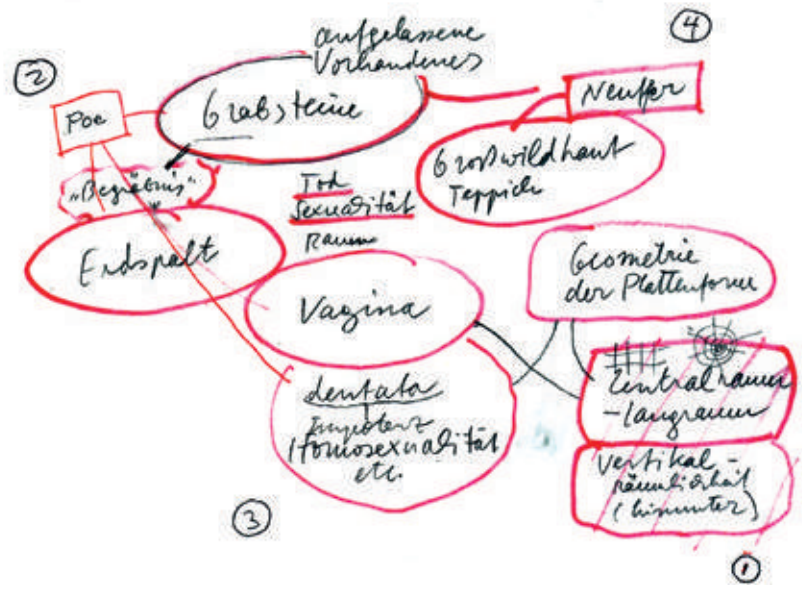 aufgelassene
Vorhandenes
④
②
Poe
Grabsteine
Neuffer
Großwildhaut
Teppich
„Begräbnis“
Tod
Sexualität
Raum
Erdspalt
Geometrie
der Plattenform
Vagina
Zentralraum
– Langraum
dentata
Impotenz
Homosexualität
etc.
Vertikal –
räumlichkeit
(hinunter)
③
①